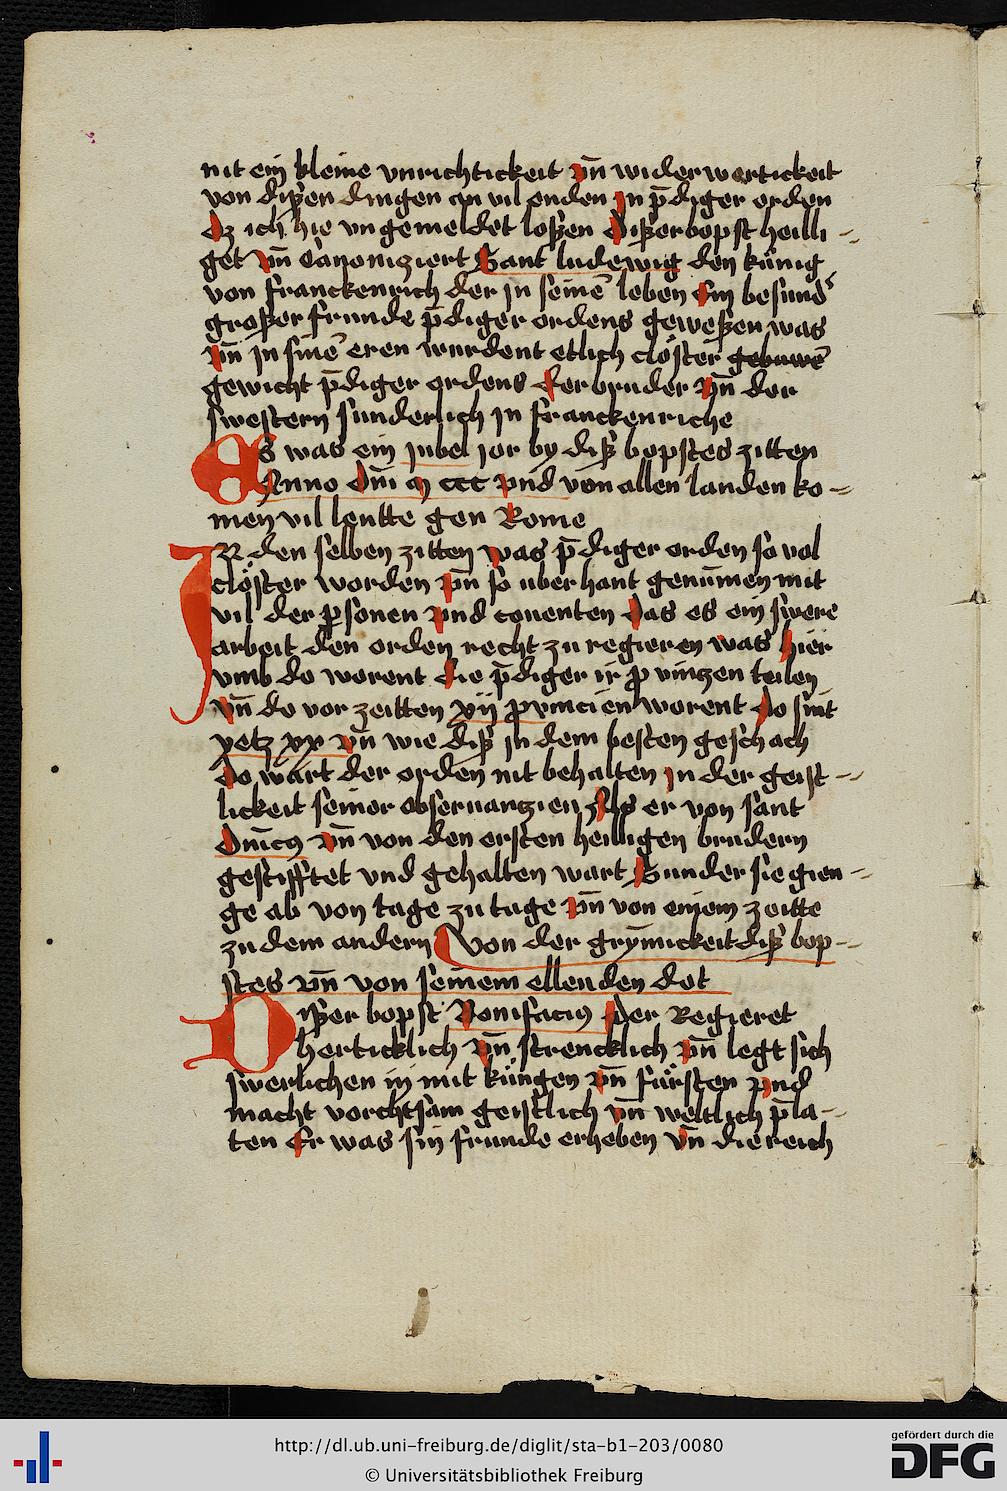 nit ein kleine vnrichtickeit vn̄ widerwertickeit
von dißen dingen an vil enden Jn p̄diger orden
Dz ich hie vngemeldet loßen Dißer bopst heilli-
get vn̄ Canoniziert Sant ludewig den künig
von franckenrich der jn seinē leben Ein besund'
großer frunde p̄diger ordens geweßen was
vn̄ jn sinē eren wurdent etlich clöster gebuwē
gewicht p̄diger ordens Der bruder vn̄ der
swestern sunderlich jn franckenriche
ES was ein jubel jor by diß bopstes zitten
Anno Dnī M ccc vnd von allen landen ko-
men vil leutte gen Rome
JN den selben zitten was p̄diger orden so vol
clöster worden vn̄ so uber hant genūmen mit
vil der personen vnd conenten Das es ein swere
arbeit den orden recht zu regieren was Hier
vmb do worent die p̄diger ir provinzen teilen
vn̄ do vor zeitten xij provincien worent Do sint
yetz xx vn̄ wie diß jn dem besten geschach
Do wart der orden nit behalten jn der geist-
lickeit seiner obseruanzien Als er von sant
Dnīcꝰ vn̄ von den ersten heilligen brudern
gestifftet vnd gehalten wart Sunder sie gien-
ge ab von tage zu tage vn̄ von einem zeitte
zu dem andern Von der grȳmickeit diß bop-
stes vn̄ von seinem ellenden dot
Dißer bopst Bonifaciꝰ Der Regieret
herticklich vn̄ strencklich vn̄ legt sich
swerlichen in mit küngen vn̄ fürsten vnd
macht vorchtsam geistlich vn̄ weltlich p̄la-
ten Er was sin frunde erheben vn̄ die reich
http://dl.ub.uni-freiburg.de/diglit/sta-b1-203/0080
© Universitätsbibliothek Freiburg
gefördert durch die
DFG